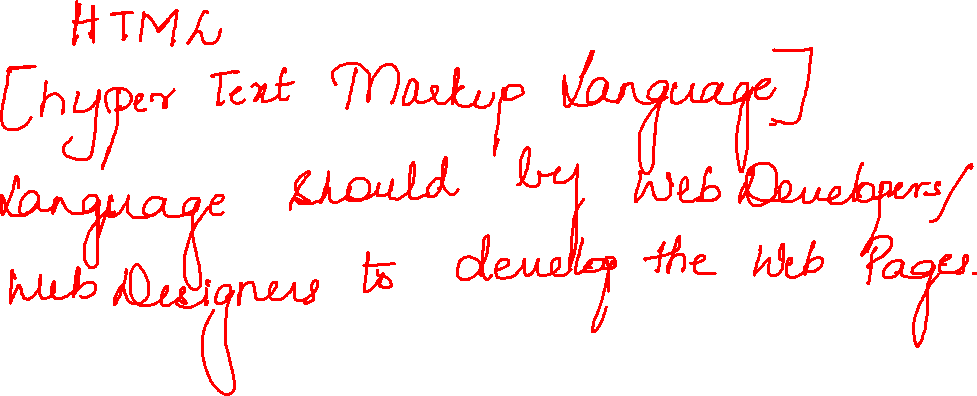 HTML
[hyper Text Markup Language]
Language should by Web Developers/
Web Designers to develop the Web Pages.